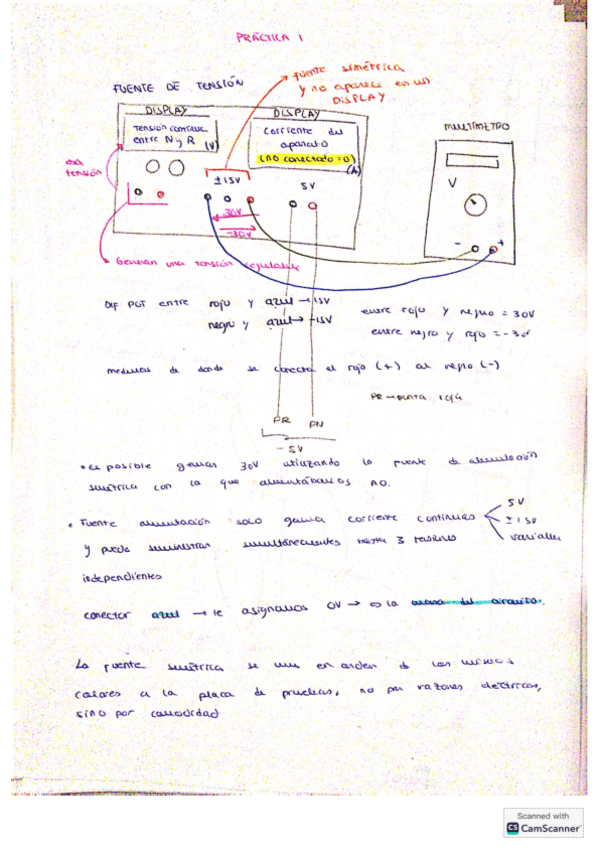 PRÁCTICA 1
fuente simétrica
y no aparece en un
DISPLAY
FUENTE DE TENSIÓN
DISPLAY
DISPLAY
MULTÍMETRO
Tensión continua
entre N y R (V)
Corriente del
aparato
(no conectado = 0)
(A)
esa
tensión
±15V
5V
V
30V
-30V
- +
Generan una tensión regulable
DIF POT entre rojo y azul → 15V
negro y azul → -15V
entre rojo y negro = 30V
entre negro y rojo = -30V
medimos de donde se conecta el rojo (+) al negro (-)
PR → punta roja
PR PN
- 5V
• es posible generar 30V utilizando la fuente de alimentación
simétrica con la que alimentábamos AO.
• Fuente alimentación solo genera corriente continua
5V
±15V
variable
y puede suministrar simultáneamente hasta 3 tensiones
independientes
conectar azul → le asignamos 0V → es la masa del circuito.
La fuente simétrica se une en orden de los mismos
colores a la placa de pruebas, no por razones eléctricas,
sino por comodidad
Scanned with
CS CamScanner